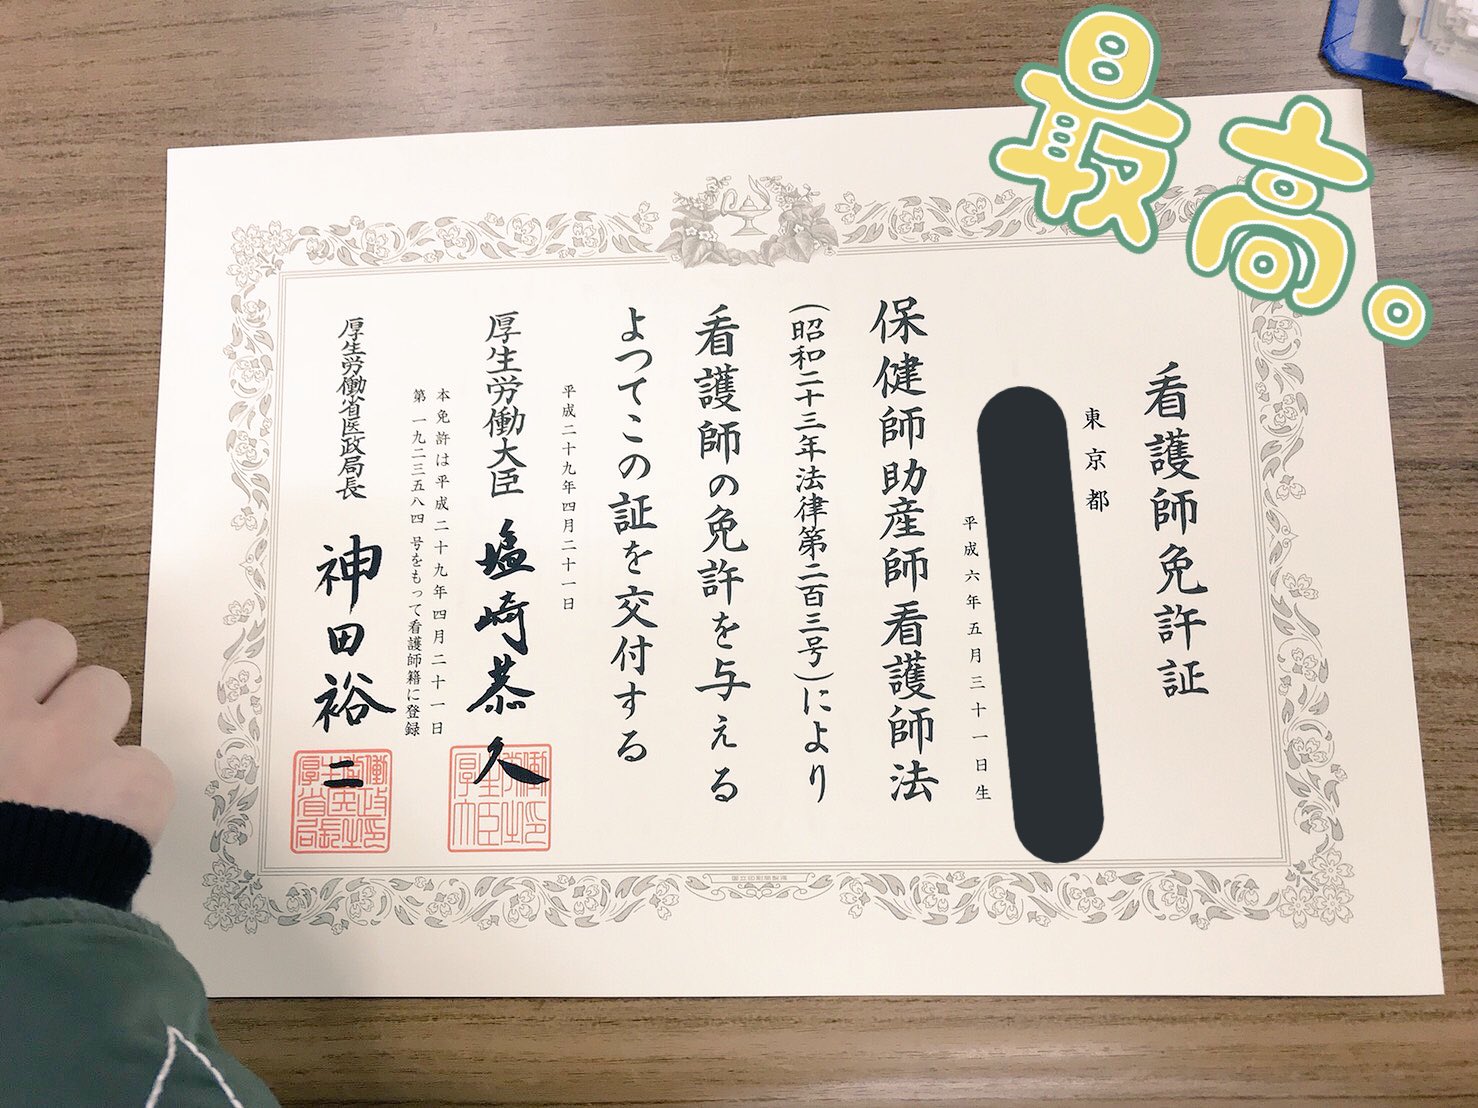 最高。
看護師免許証
東京都
平成六年五月三十一日生
保健師助産師看護師法
(昭和二十三年法律第二百三号)により
看護師の免許を与える
よつてこの証を交付する
平成二十九年四月二十一日
厚生労働大臣 塩崎恭久
本免許は平成二十九年四月二十一日
第一九二三五八四号をもって看護師籍に登録
厚生労働省医政局長 神田裕二